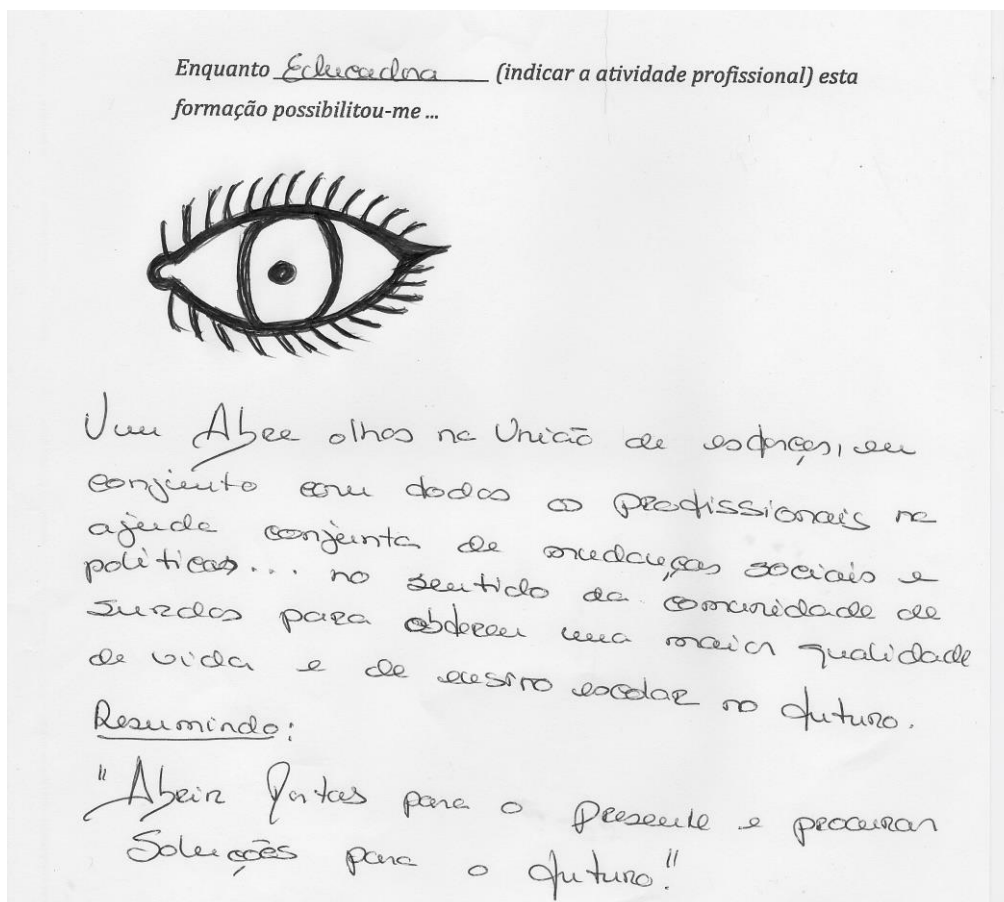 Enquanto Educadora (indicar a atividade profissional) esta
formação possibilitou-me ...
Um Abre olhos na União de esforços, em
conjunto com todos os profissionais na
ajuda conjunta de mudanças sociais e
políticas... no sentido da comunidade de
surdos para obterem uma maior qualidade
de vida e de ensino escolar no futuro.
Resumindo:
"Abrir Portas para o presente e procurar
Soluções para o futuro."